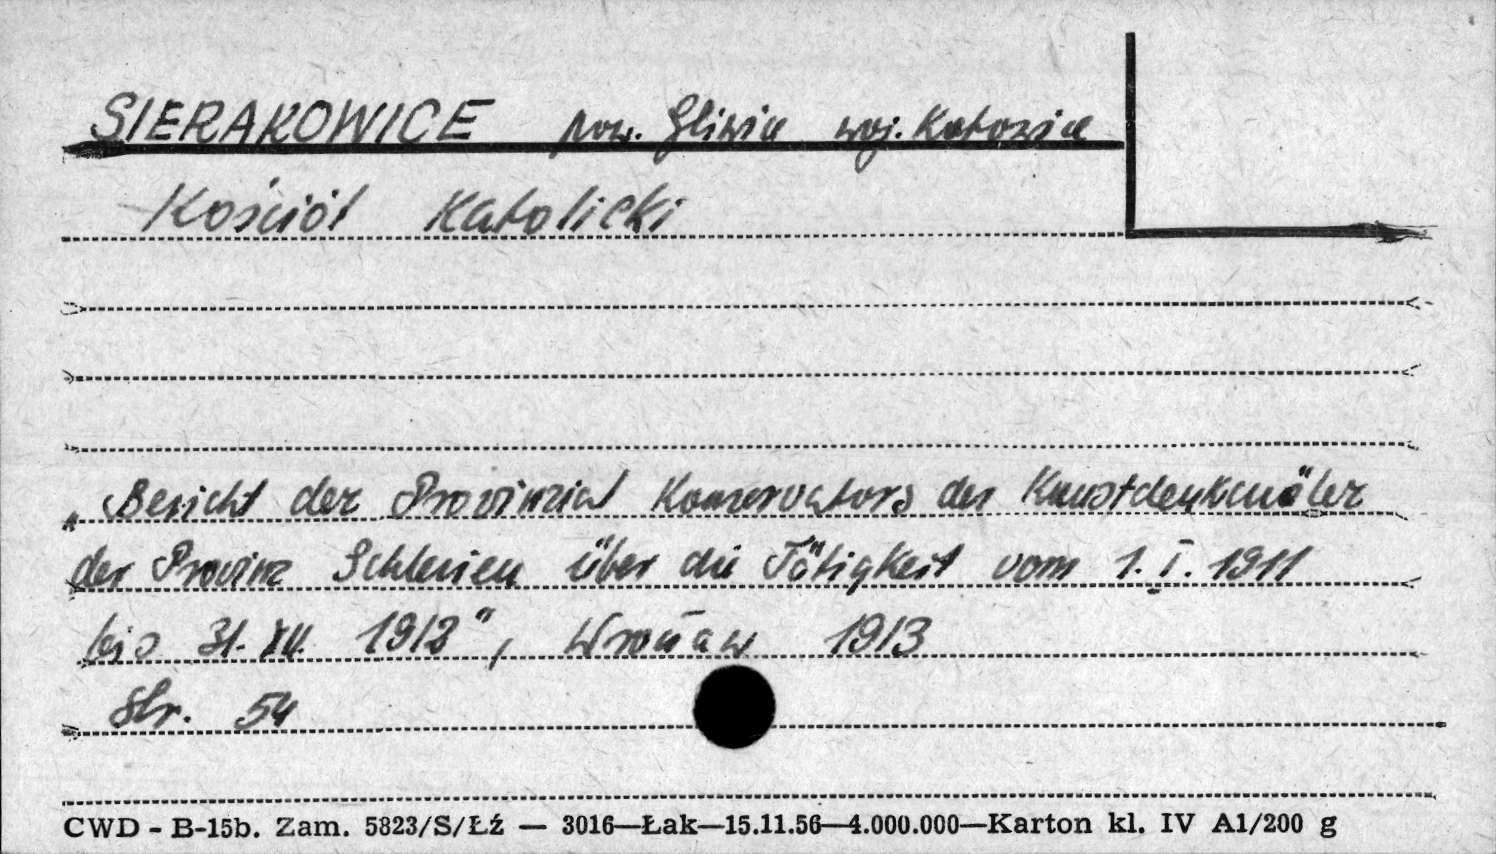 SIERAKOWICE pow. Gliwice woj. Katowice
Kościół Katolicki
„Bericht der Provinzial Konservators der Kunstdenkmäler
der Provinz Schlesien über die Tätigkeit vom 1.I.1911
bis 31.XII. 1912", Wrocław 1913
Str. 54
CWD - B-15b. Zam. 5823/S/Łź — 3016—Łak—15.11.56—4.000.000—Karton kl. IV A1/200 g